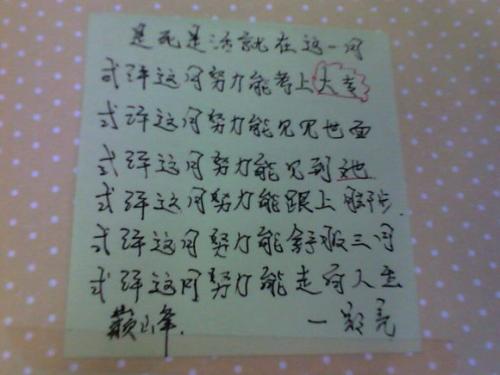 是死是活就在这一周
或许这周努力能考上大专
或许这周努力能见见世面
或许这周努力能见到她
或许这周努力能跟上脚步.
或许这周努力能舒服三周
或许这周努力能走向人生
巅峰. 一 亮